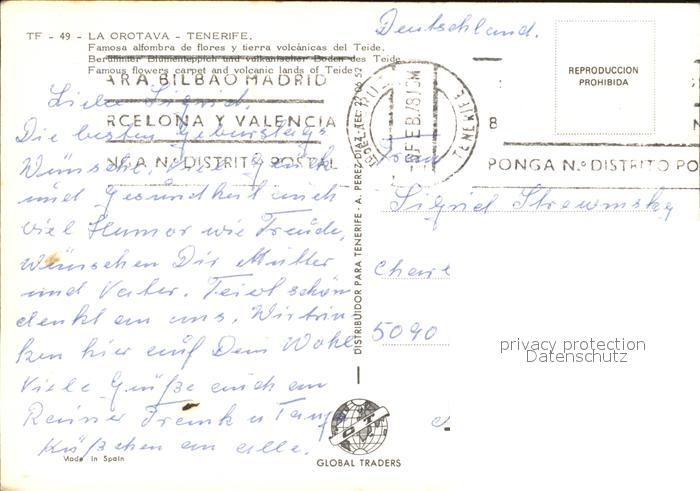 TF - 49 - LA OROTAVA - TENERIFE.
Famosa alfombra de flores y tierra volcánicas del Teide.
Berühmter Blumenteppich und vulkanischer Boden des Teide.
Famous flowers carpet and volcanic lands of Teide.
ARA BILBAO MADRID
RCELONA Y VALENCIA
NGA N.º DISTRITO POSTAL
Liebe Sigrid
Die besten Geburstags
Wünsche. Viel Glück
und Gesundheit auch
viel Humor wie Freude,
wünschen Dir Mutter
und Vater. Feiert schön
denkt an uns. Wir trin
ken hier auf Dein Wohl
Viele Grüße auch an
Reiner Frank u Tanja
Küßchen an alle.
Made in Spain
DISTRIBUIDOR PARA TENERIFE - A. PEREZ DIAZ. TEL: 22 06 52
Deutschland.
FEB.78
TENERIFE
8
PONGA N.º DISTRITO PO
REPRODUCCION
PROHIBIDA
Frau
Sigrid
5090
privacy protection
Datenschutz
GT
GLOBAL TRADERS